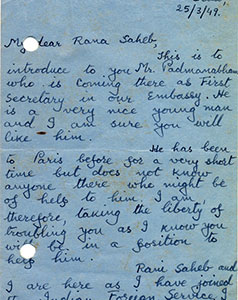 25/3/49.
My dear Rana Saheb,
This is to
introduce to you Mr. Padmanabhan
who is coming there as First
Secretary in our Embassy. He
is a very nice young man
and I am sure you will
like him.
He has been
to Paris before for a very short
time but does not know
anyone there who might be
of help to him. I am
therefore, taking the liberty of
troubling you as I know you
will be in a position to
help him.
Rani Saheb and
I are here as I have joined
Indian Foreign Service. I